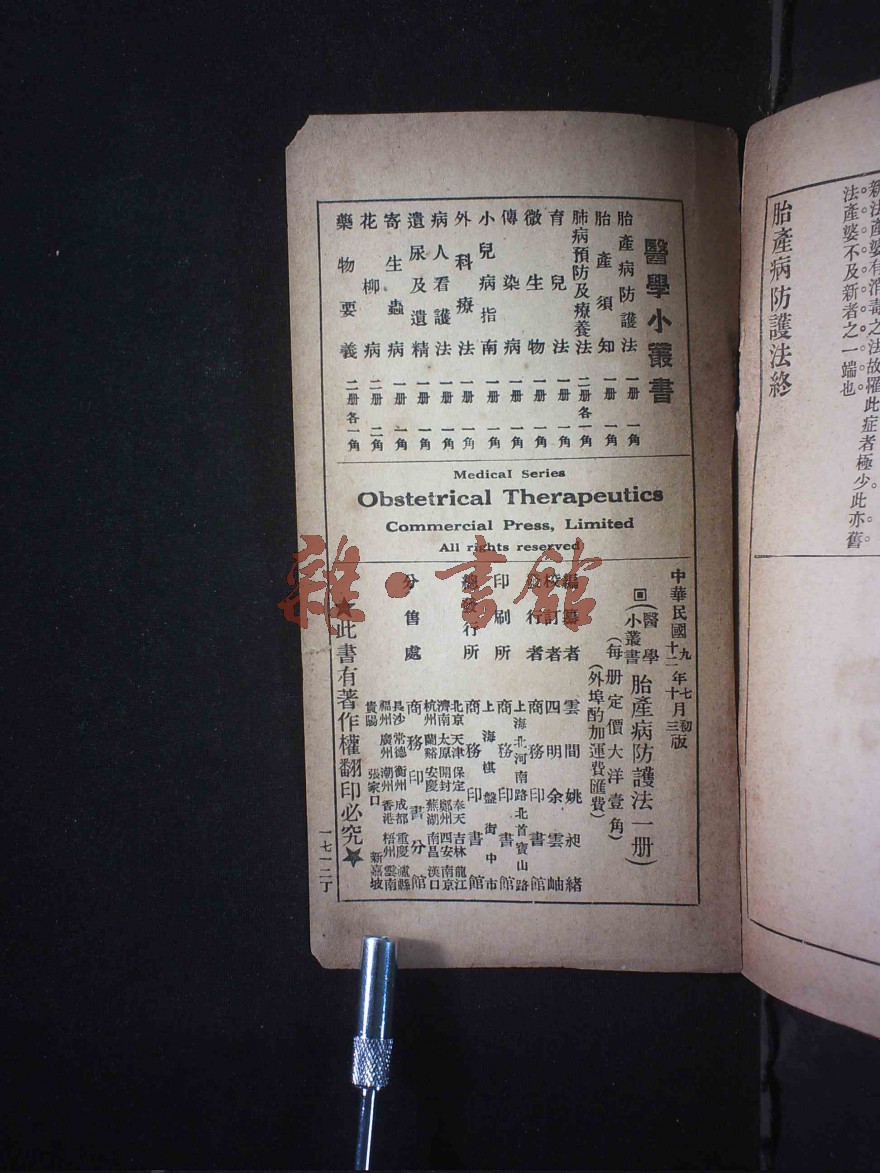 新法產婆有消毒之法故懼此症者極少此亦舊
法產婆不及新者之一端也
胎產病防護法終
醫學小叢書
胎產病防護法 一册 一角
胎產須知 一册 一角
肺病預防及療養法 二册各一角
育兒法 一册 一角
微生物 一册 一角
傳染病 一册 一角
小兒病指南 一册 一角
外科療法 一册 一角
病人看護法 一册 一角
遺尿及遺精 一册 一角
寄生蟲病 一册 一角
花柳病 二册 二角
藥物要義 二册各一角
Medical Series
Obstetrical Therapeutics
Commercial Press, Limited
All rights reserved
中華民國九年七月初版
十二年十月三版
(醫學小叢書 胎產病防護法一册)
(每册定價大洋壹角)
(外埠酌加運費匯費)
編纂者 雲間姚昶緒
校訂者 四明余雲岫
發行者 商務印書館
上海北河南路北首寶山路
印刷所 商務印書館
上海棋盤街中市
總發行所 商務印書館
北京 天津 保定 奉天 吉林 龍江
濟南 太原 開封 鄭州 西安 南京
杭州 蘭谿 安慶 蕪湖 南昌 漢口
分售處 商務印書分館
長沙 常德 衡州 成都 重慶 瀘縣
福州 廣州 潮州 香港 梧州 雲南
貴陽 張家口 新嘉坡
★此書有著作權翻印必究★
一七一二丁
雜·書館